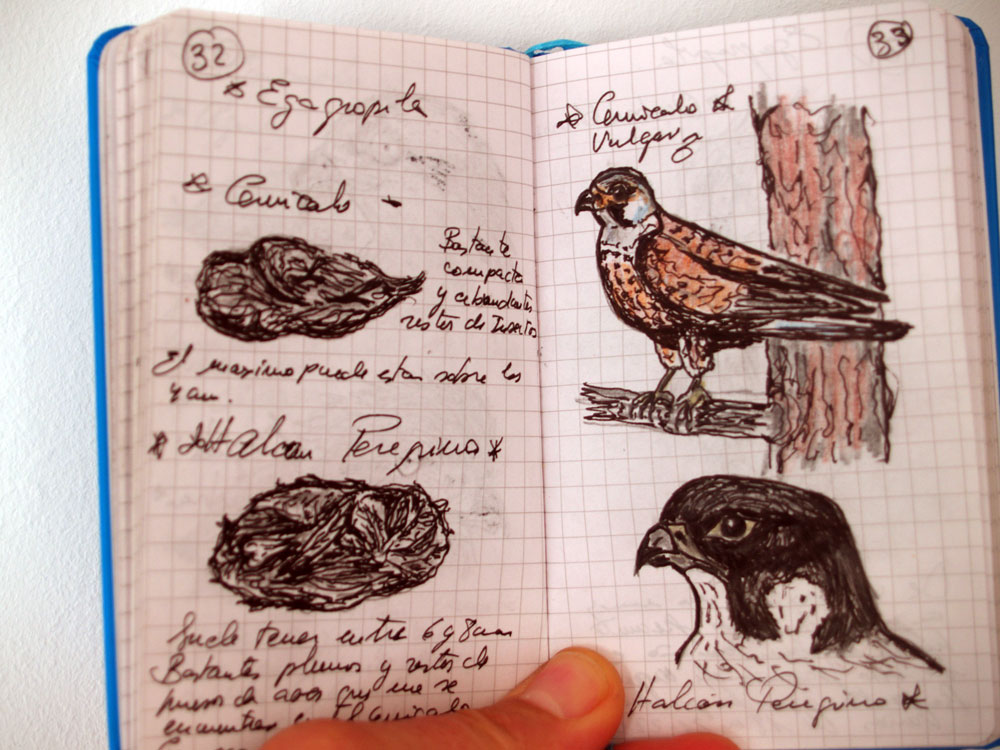 32
* Egagropila
* Cernicalo -
Bastante
compacta
y abundantes
restos de Insectos
El maximo puede estar sobre los
4 cm.
* Halcon Peregrino *
Suele tener entre 6 y 8 cm
Bastantes plumas y restos de
huesos de aves que no se
encuentran en el cernicalo
33
* Cernicalo *
Vulgar
Halcón Peregrino *